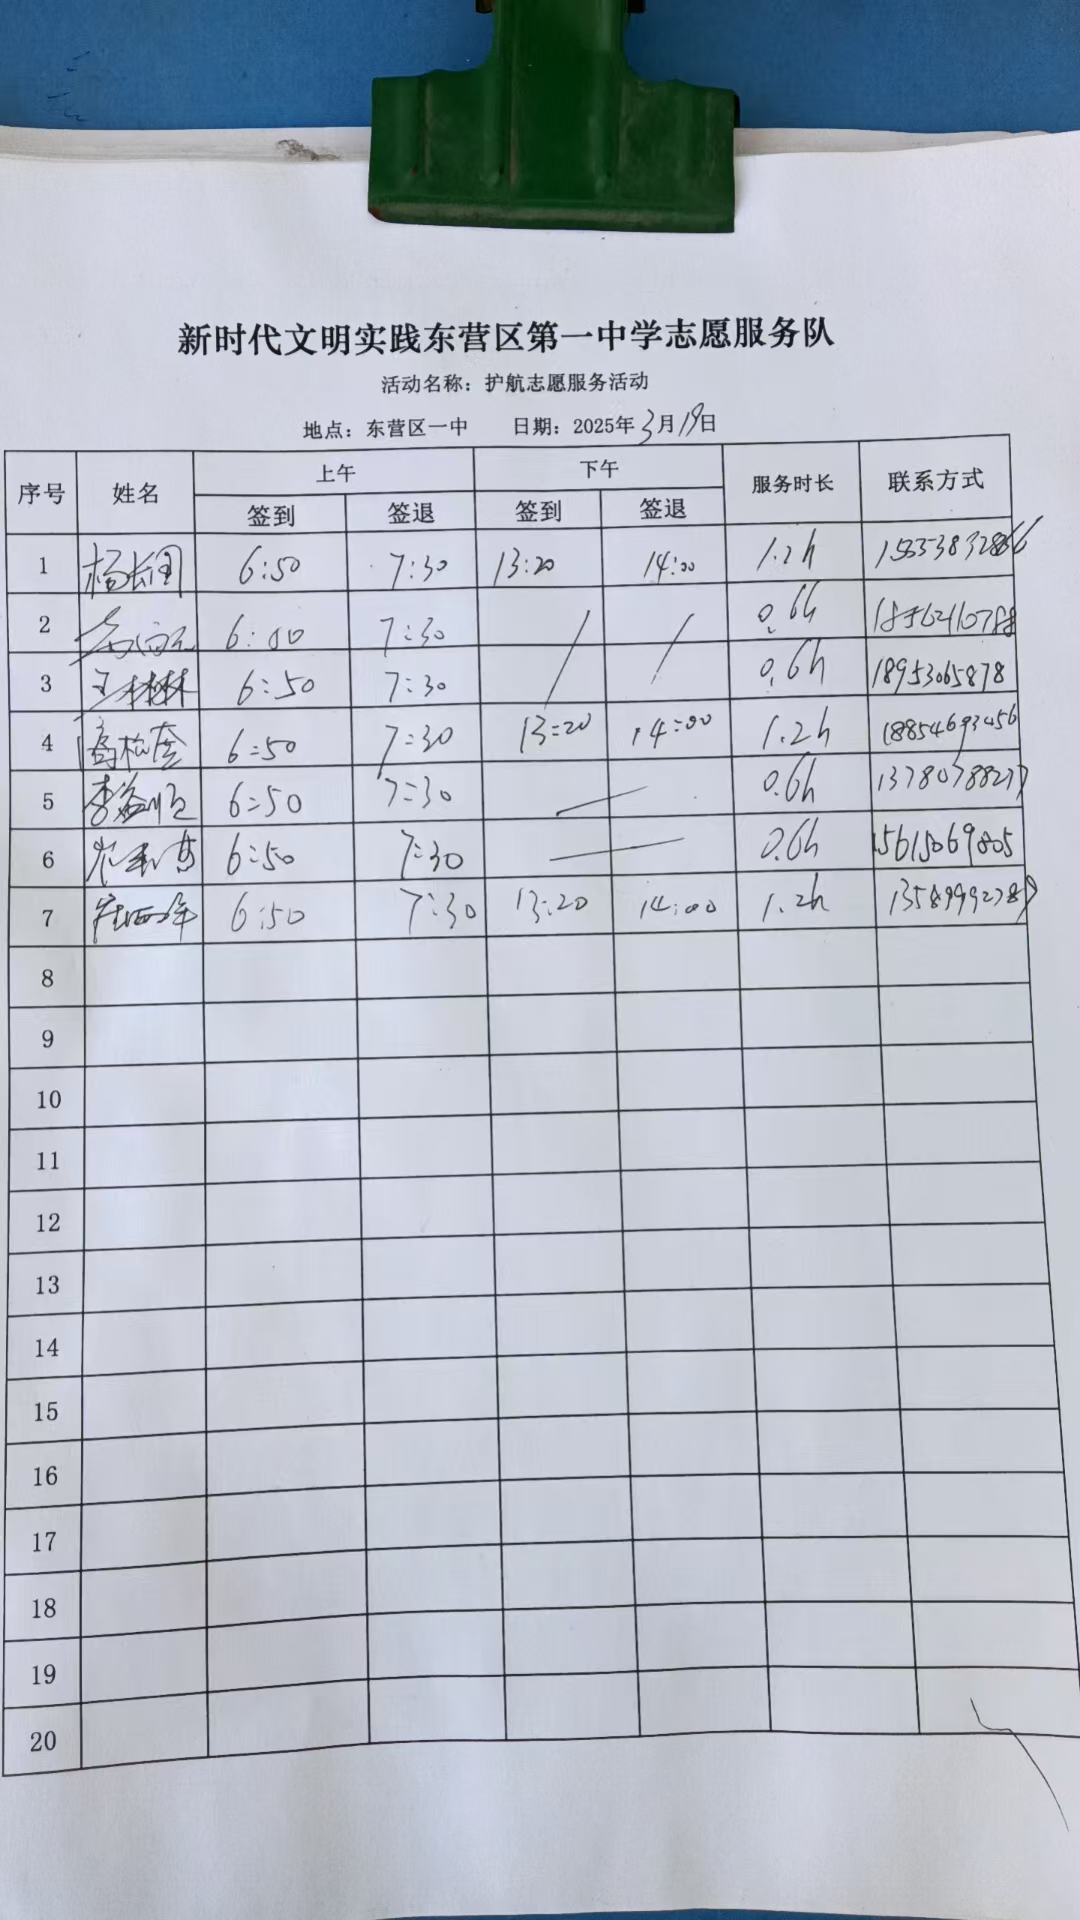 新时代文明实践东营区第一中学志愿服务队
活动名称：护航志愿服务活动
地点：东营区一中 日期：2025年3月19日
序号 姓名 上午 下午 服务时长 联系方式
签到 签退 签到 签退
1 6:50 7:30 13:20 14:00 1.2h
2 7:30 0.6h
3 王林林 6:50 7:30 0.6h 18953065878
4 高松奎 6:50 7:30 13:20 14:00 1.2h 18854693456
5 李益顺 6:50 7:30 0.6h 13780788277
6 6:50 7:30 0.6h 15615069805
7 6:50 7:30 13:20 14:00 1.2h 13589992789
8
9
10
11
12
13
14
15
16
17
18
19
20